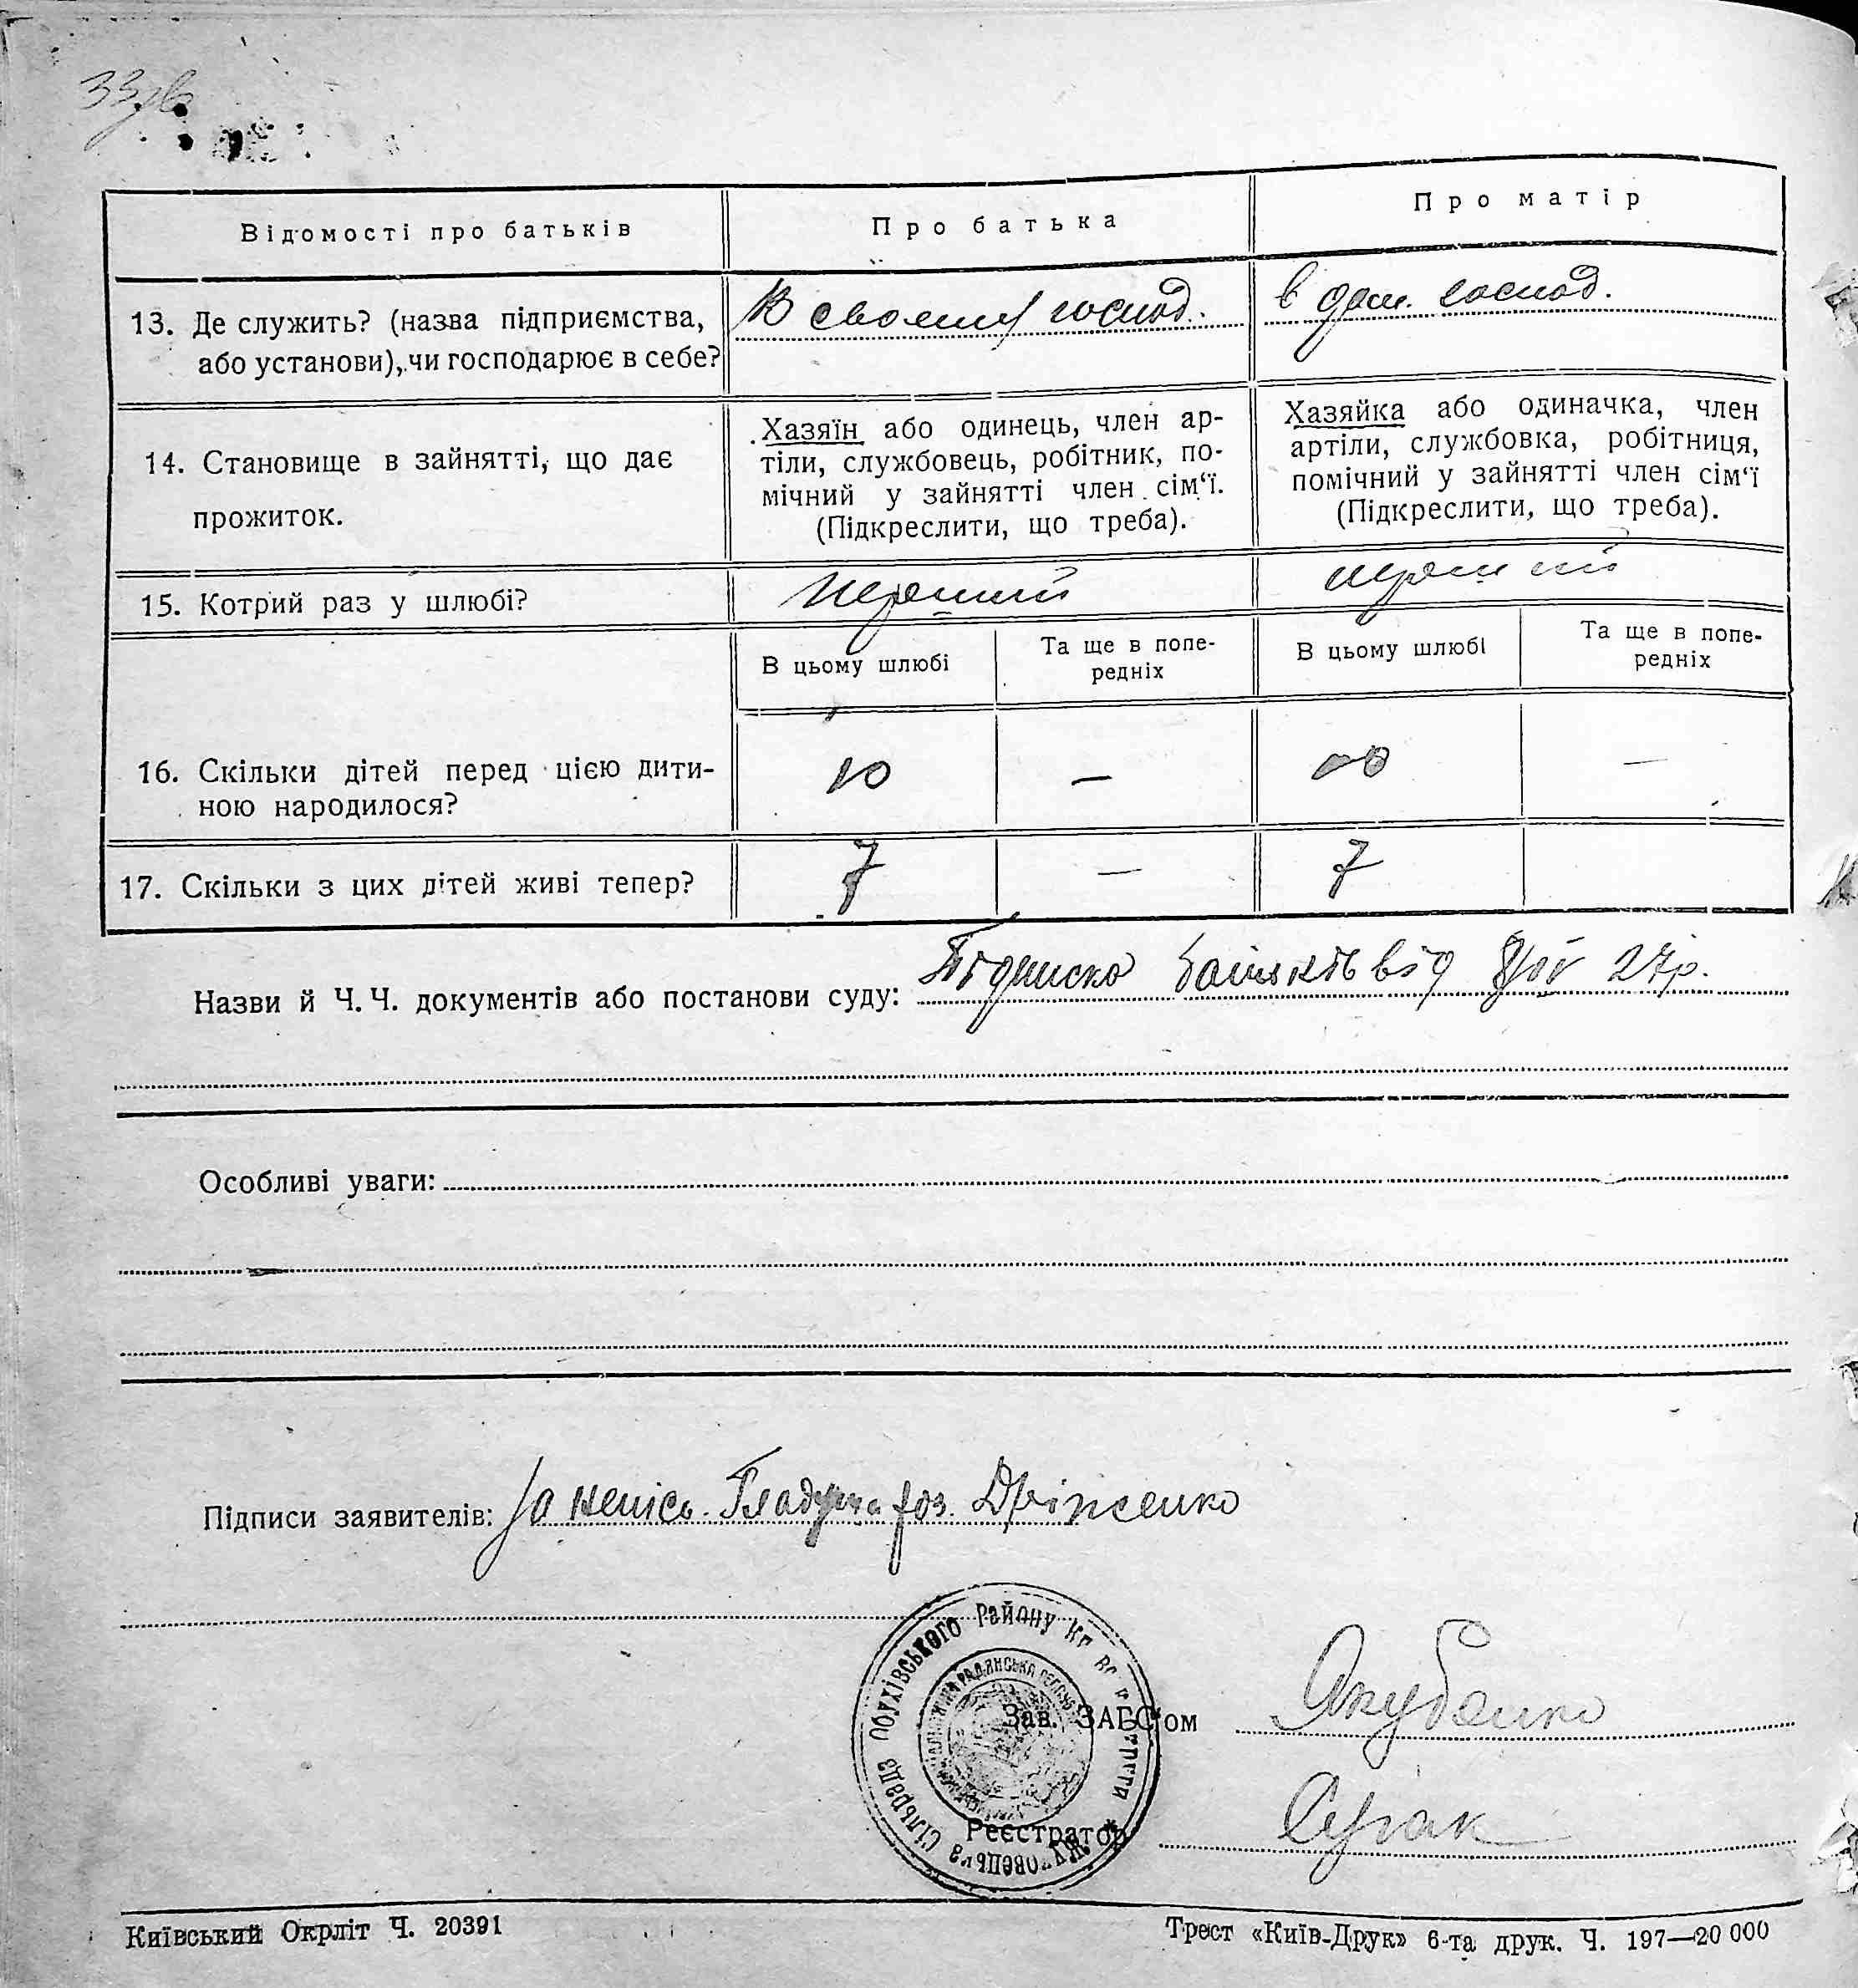 33зв
Відомості про батьків
Про батька
Про матір
13. Де служить? (назва підприємства,
або установи), чи господарює в себе?
В своєму господ.
в дом. господ.
14. Становище в зайнятті, що дає
прожиток.
Хазяїн або одинець, член ар-
тіли, службовець, робітник, по-
мічний у зайнятті член сім'ї.
(Підкреслити, що треба).
Хазяйка або одиначка, член
артіли, службовка, робітниця,
помічний у зайнятті член сім'ї
(Підкреслити, що треба).
15. Котрий раз у шлюбі?
перший
перший
В цьому шлюбі
Та ще в попе-
редніх
В цьому шлюбі
Та ще в попе-
редніх
16. Скільки дітей перед цією дити-
ною народилося?
10
—
10
—
17. Скільки з цих дітей живі тепер?
7
—
7
Назви й Ч. Ч. документів або постанови суду: Підписка батьків від 27р.
Особливі уваги:
Підписи заявителів: За непісь. роз.
Сільрада Обухівського Району
Зав. ЗАГС'ом Якубенко
Реєстратор
Київський Окрліт Ч. 20391
Трест «Київ-Друк» 6-та друк. Ч. 197—20 000